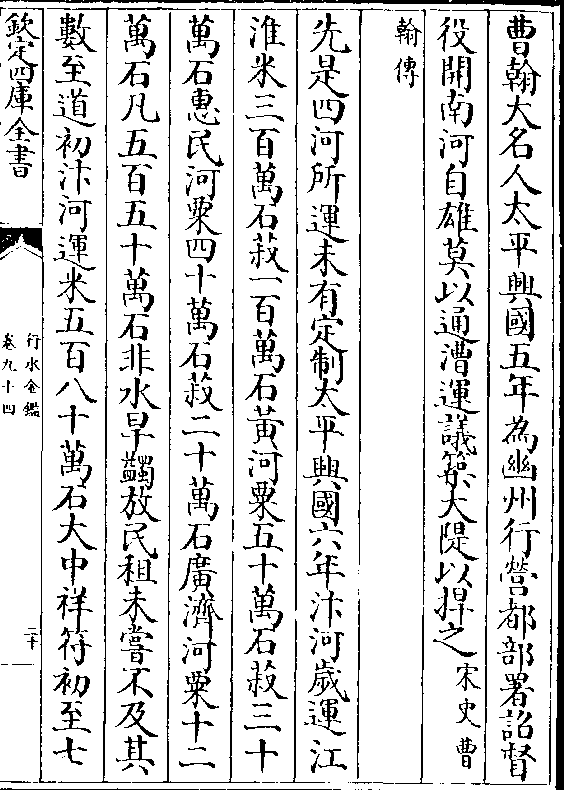 曹翰大名人太平興國五年為幽州行營都部署詔督
役開南河自雄莫以通漕運議築大隄以捍之宋史曹
翰傳
先是四河所運未有定制太平興國六年汴河歲運江
淮米三百萬石菽一百萬石黃河粟五十萬石菽三十
萬石惠民河粟四十萬石菽二十萬石廣濟河粟十二
萬石凡五百五十萬石非水旱蠲放民租未嘗不及其
數至道初汴河運米五百八十萬石大中祥符初至七
欽定四庫全書
行水金鑑
卷九十四
二十